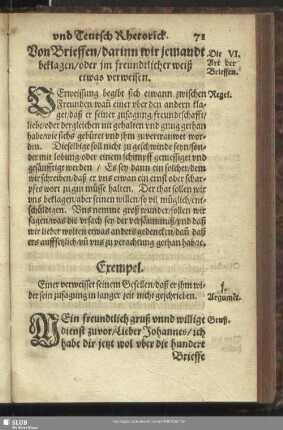 vnd Teutsch Rhetorick. 71
Von Brieffen/darinn wir jemandt
beklagen/oder jm freundtlicher weiß
etwas verweisen.
Die VI.
Art der
Brieffen.
VErweissung begibt sich etwann zwischen
Freunden wañ einer vber den andern kla-
get/daß er seiner zusagung/freundschafft/
liebe/oder dergleichen nit gehalten vnd gnug gethan
habe/wie sichs gebürer vnd ihm zu vertrauwet wor-
den. Dieselbige soll nicht zu geschwinde seyn/son-
der mit lobung oder einem schimpff gemessiget vnd
gesäufftiget werden / Es sey dann ein solcher/dem
wir schreiben/daß er vns etwan ein ernst oder schar-
pffes wort zu gut müsse halten. Der that sollen wir
vns beklagen/aber seinen willen/so vil müglich/ent-
schüldigen. Vns nemme groß wunder/sollen wir
sagen/was die vrsach sey der versäumnuß/vnd daß
wir lieber wolten etwas anders gedencken/dañ daß
ers auffsetzlich/vñ vns zu verachtung gethan habe.
Regel.
Exempel.
Einer verweisset seinem Gesellen/daß er jhm wi-
der sein zusagung in langer zeit nicht geschrieben.
1.
Argumēt.
MEin freundlich gruß vnnd willige
dienst zuvor/Lieber Johannes/ich
habe dir jetzt wol vber die hundert
Brieffe
Gruß.
SLUB